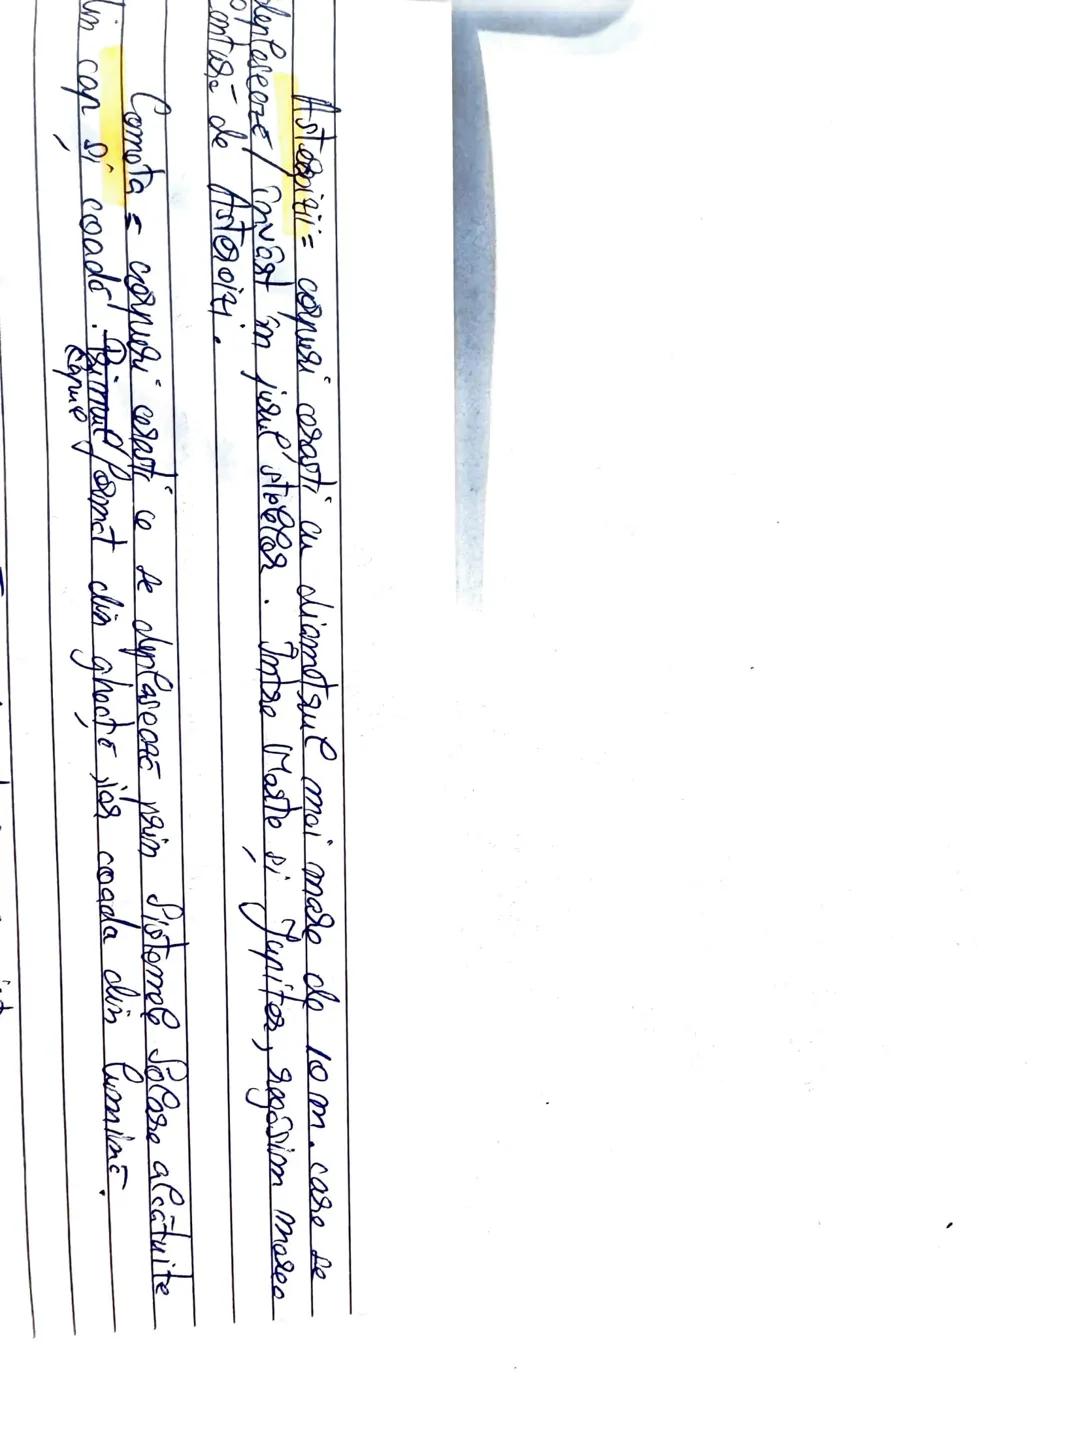 Asteroizii = corpuri cerești cu diametrul mai mare de 10 m. care se
deplasează / învârt în jurul stelelor. Între Marte și Jupiter, regăsim marea
centură de Asteroizi.
Cometa = corpuri cerești ce se deplasează prin Sistemele Solare alcătuite
din cap și coadă. Primul format din gheață, iar coada din lumină.
capul